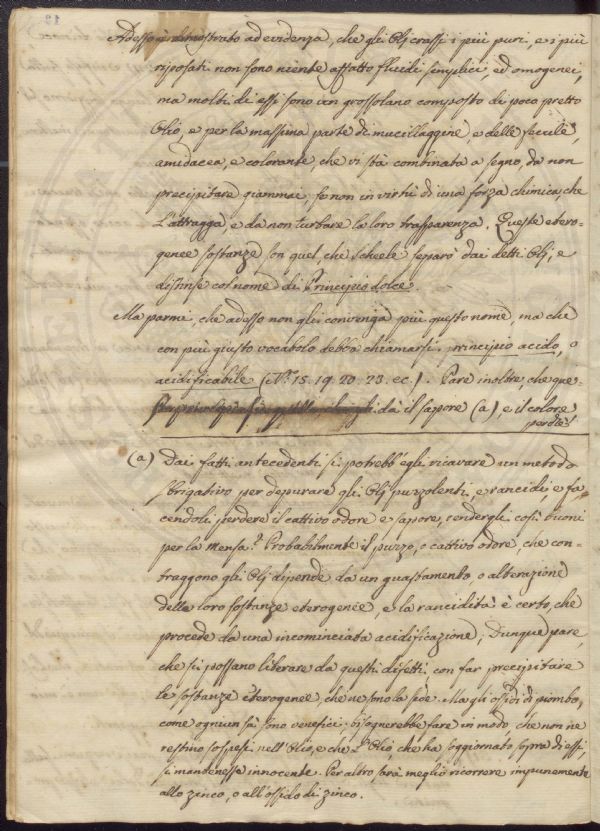 Adesso è dimostrato ad evidenza, che gli Olj crassi i più puri, e i più
riposati non sono niente affatto fluidi semplici ed omogenei,
ma molti di essi sono un grossolano composto di poco pretto
Olio, e per la massima parte di mucillaggine, e delle fecule,
amidacea, e colorante, che vi stà combinata a segno, da non
precipitare giammai, se non in virtù di una forza chimica, che
l'attragga, e da non turbare la loro trasparenza. Queste etero-
genee sostanze son quel, che Schiele separò dai detti Olj, e
distinse col nome di Principio dolce.
Ma parmi, che adesso non gli convenga più questo nome, ma che
con più giusto vocabolo debba chiamarsi principio acido, o
acidificabile (Nⁱ. 15. 19. 20. 23. ec.). Pare inoltre, che que-
dà il sapore (a), e il colore
perciò
(a) Dai fatti antecedenti si potrebb'egli ricavare un metodo
sbrigativo per depurare gli Olj puzzolenti, e rancidi e fa-
cendoli perdere il cattivo odore e sapore, rendergli così buoni
per la Mensa? Probabilmente il puzzo, o cattivo odore, che con-
traggono gli Olj dipende da un guastamento, o alterazione
delle loro sostanze eterogenee, e la rancidità è certo, che
procede da una incominciata acidificazione; Dunque pare,
che si possano liberare da questi difetti con far precipitare
le sostanze eterogenee, che ne sono la sede. Ma gli ossidi di piombo,
come ogniun sà sono venefici: bisognerebbe fare in modo, che non ne
restino sospesi nell'Olio, e che l'Olio, che ha soggiornato sopra di essi,
si mantenesse innocente. Per altro sarà meglio ricorrere impunemente
allo zinco, o all'ossido di zinco.